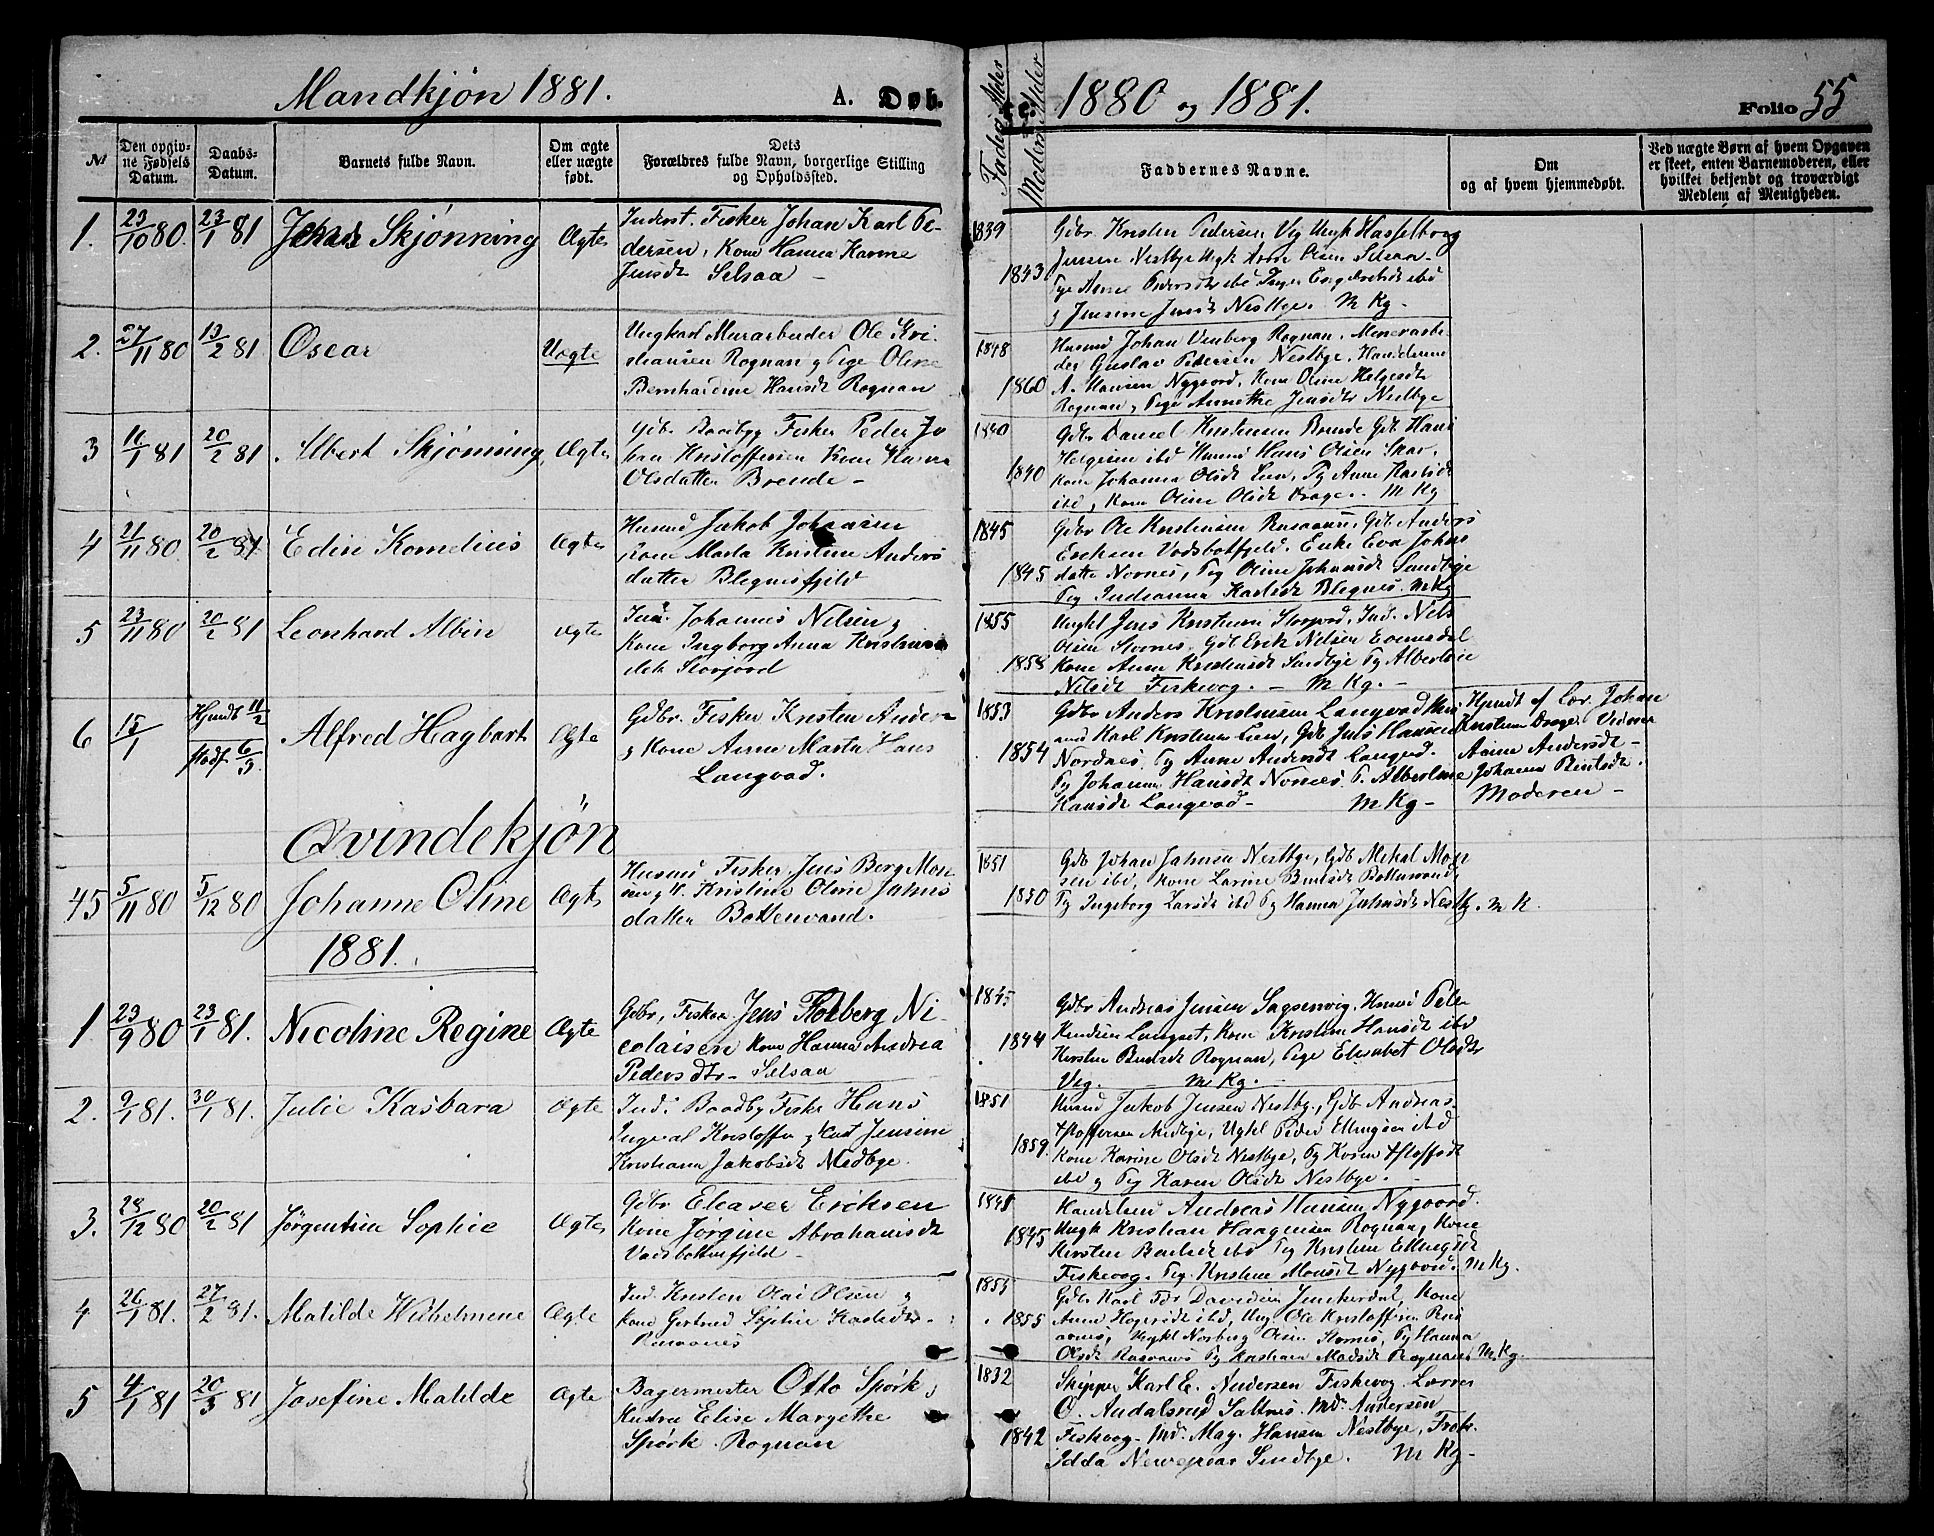 Mandkjøn 1881.
A. Døb.
te.
1880 og 1881.
Folio 55
№
Den opgivne Fødsels Datum.
Daabs-Datum.
Barnets fulde Navn.
Om ægte eller uægte født.
Dets Forældres fulde Navn, borgerlige Stilling og Opholdssted.
Faders Alder
Moders Alder
Faddernes Navne.
Om og af hvem hjemmedøbt.
Ved uægte Børn af hvem Opgaven er skeet, enten Barnemoderen, eller hvilket bekjendt og troværdigt Medlem af Menigheden.
1. 23/10 80. 23/1 81 Skjønning Ægte
Inderst. Fisker Johan Karl Pe-
dersen, Kone Hanna Karine
Jensdt Selsaa -
1839
1843
Gdbr Kristen Pedersen Vig Ungk Hasselborg
Jensen Nestbye Ugk Arne Olsen Selsaa
Pge Anne Pedersdt ibd
og Jensine Jensdt Nestbye. M Kg.
2. 27/11 80 13/2 81 Oscar Uægte
Ungkarl Murarbeider Ole Kri-
stiansen Rognan og Pige Oline
Bernhardine Hansdt Rognan
1848
1860
Husmd Johan Venberg Rognan, Minerarbei-
der Gustav Pedersen Nestbye, Handelsmd
A. Hansen Nygaard, Kone Oline Helgesdt
Rognan, Pige Annethe Jensdtr Nestbye
3 11/1 81 20/2 81 Albert Skjønning Ægte
Gdb. Baadbyg Fisker Peder Jo
han Kristoffersen Kone Hanna
Olsdatter Brende -
1840
1840
Gdbr Daniel Kristensen Brende Gdb Hans
Helgesen ibd Husmd Hans Olsen Skar,
Kone Johanna Olsdt Lien, Pg Anne
ibd, Kone Oline Olsdt Drage. M Kg
4 21/11 80. 20/2 81 Edin Kornelius Ægte
Husmd Jakob Johansen
Kone Marta Kristine Anders
datter Blegnesfjeld
1845
1845
Gdbr Ole Kristensen Gdb Anders
Eriksen Vadsbotfjeld. Enke Eva Johns
datte Nornes, Pg Oline Johansdt Sundbye
Pg Indianna Karlsdt Blegnes. M Kg
5 23/11 80 20/2 81 Leonhard Albin Ægte
Ind. Johannes Nilsen og
Kone Ingborg Anna Kristens
dtr Storjord
1855
1858
Ungkl Jens Kristensen Storjord, Ind. Nels
Olsen Stornes, Gdb Erik Nilsen Evensdal
Kone Anne Kristensdt Sundbye Pg Albertine
Nilsdt Fiskevog. - M Kg. -
6 15/1 Hjmdt 11/2 Stadf. 6/3 Alfred Hagbart Ægte
Gdbr. Fisker Kristen Anders
og Kone Anne Marta Hans
Langvad.
1853
1854
Gdbr Anders Kristensen Langvad Hus-
md Karl Kristensen Lien, Gdb Jens Hansen
Nordnes, Pg Anne Andersdt Langvad.
Pg Johanna Hansdt Nornes P. Albertine
Hansdt Langvad - M Kg -
Hjmdt af Lær. Johan
Kristensen Drage. Vidner
Anne Andersdt -
Johanna
Moderen -
Qvindekjøn
45 5/11 80 5/12 80 Johanne Oline Ægte
Husmd Fisker Jens Berg Mon
sen og K. Kristine Oline Jahns
datter Bottenvand.
1851
1850
Gdb Johan Jahnsen Nestbye, Gdb Mikal Mon
sen ibd, Kone Larine Bottenvand
Pg Ingeborg Larsdt ibd Pg Hanna Jahnsdt Nestby. M K.
1881.
1. 23/9 80 23/1 81. Nicoline Regine Ægte
Gdbr, Fisker Jens Ni-
colaisen Kone Hanna Andrea
Pedersdtr - Selsaa
1845
1844
Gdbr Andreas Jensen Saksenvig, Husmd Peter
Langset, Kone Kristine Hansdt ibd
Kirsten Rognan, Pige Elisabet Olsdtr
Vig. - M Kg. -
2. 9/1 81. 30/1 81. Julie Kasbara Ægte
Ind. Baadby Fisker Hans
Ingeval Kristoffer og Hust Jensine
Kristiana Jakobsdt Medbye.
1851
1859.
Husmd Jakob Jensen Nestby, Gdb Andreas
Kstoffersen Medbye, Ugkl Peder Ellingsen ibd
Kone Karine Olsdt Nestbye, Pg Karen Kstoffsdt
ibd og Pig Karen Olsdt Nestbye. -
3. 28/12 80 20/2 81 Jørgentine Sophie Ægte
Gdbr Eleaser Eriksen
Kone Jørgine Abrahamsdt
Vadsbottenfjeld -
1845
Handelsm Andreas Hansen Nygaard.
Ungk Kristian Haagensen Rognan, Kone
Kirsten ibd Pg Kristine Ellingsdt
Fiskevog. Pig. Kristine Monsdt Nygaard. M Kg.
4 26/1 81. 27/2 81. Matilde Wilhelmine Ægte
Ind. Kristen Olai Olsen og
Kone Gertrud Sophie
1853
1855
Gdb. Karl Davidsen Junkerdal, Kone
Anne ibd, Ungk Ole Kristoffersen
Ungkl Norberg Olsen Stornes, Pg Hanna
Olsdt Pg Kristiane Madsdt Rognan, M. Kg.
5 4/1 81 20/3 81 Josefine Matilde Ægte
Bagermester Otto Spörk og
Hustru Elise Margethe
Spörk. Rognan
1832
1842
Skipper Karl E. Andersen Fiskevog. Lærer
O. Andalsrud Saltnes. Md. Andersen
Fiskevog - Md. Mag. Hansen Nestbye, Frøk.
Idda Sundbye. M Kg -